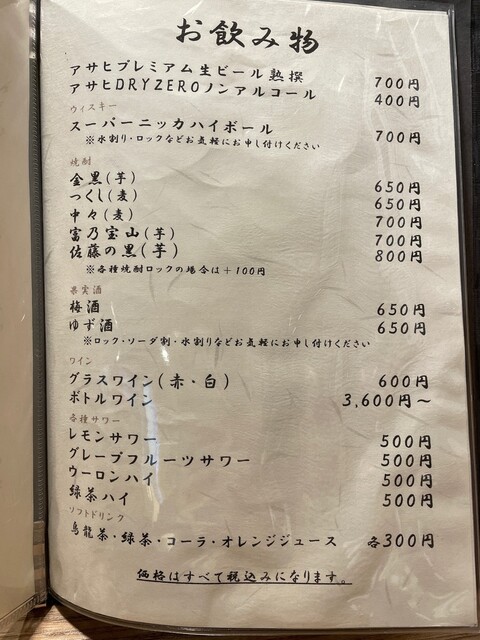 お飲み物
アサヒプレミアム生ビール熟撰 700円
アサヒDRYZEROノンアルコール 400円
ウィスキー
スーパーニッカハイボール 700円
※水割り・ロックなどお気軽にお申し付けください
焼酎
金黒(芋) 650円
つくし(麦) 650円
中々(麦) 700円
富乃宝山(芋) 700円
佐藤の黒(芋) 800円
※各種焼酎ロックの場合は+100円
果実酒
梅酒 650円
ゆず酒 650円
※ロック・ソーダ割・水割りなどお気軽にお申し付けください
ワイン
グラスワイン(赤・白) 600円
ボトルワイン 3,600円~
各種サワー
レモンサワー 500円
グレープフルーツサワー 500円
ウーロンハイ 500円
緑茶ハイ 500円
ソフトドリンク
烏龍茶・緑茶・コーラ・オレンジジュース 各300円
価格はすべて税込みになります。